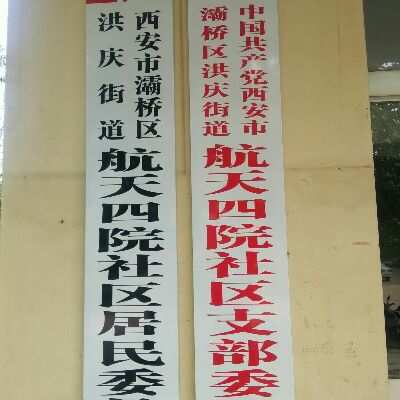 中国共产党西安市
灞桥区洪庆街道
航天四院社区支部委
西安市灞桥区
洪庆街道
航天四院社区居民委